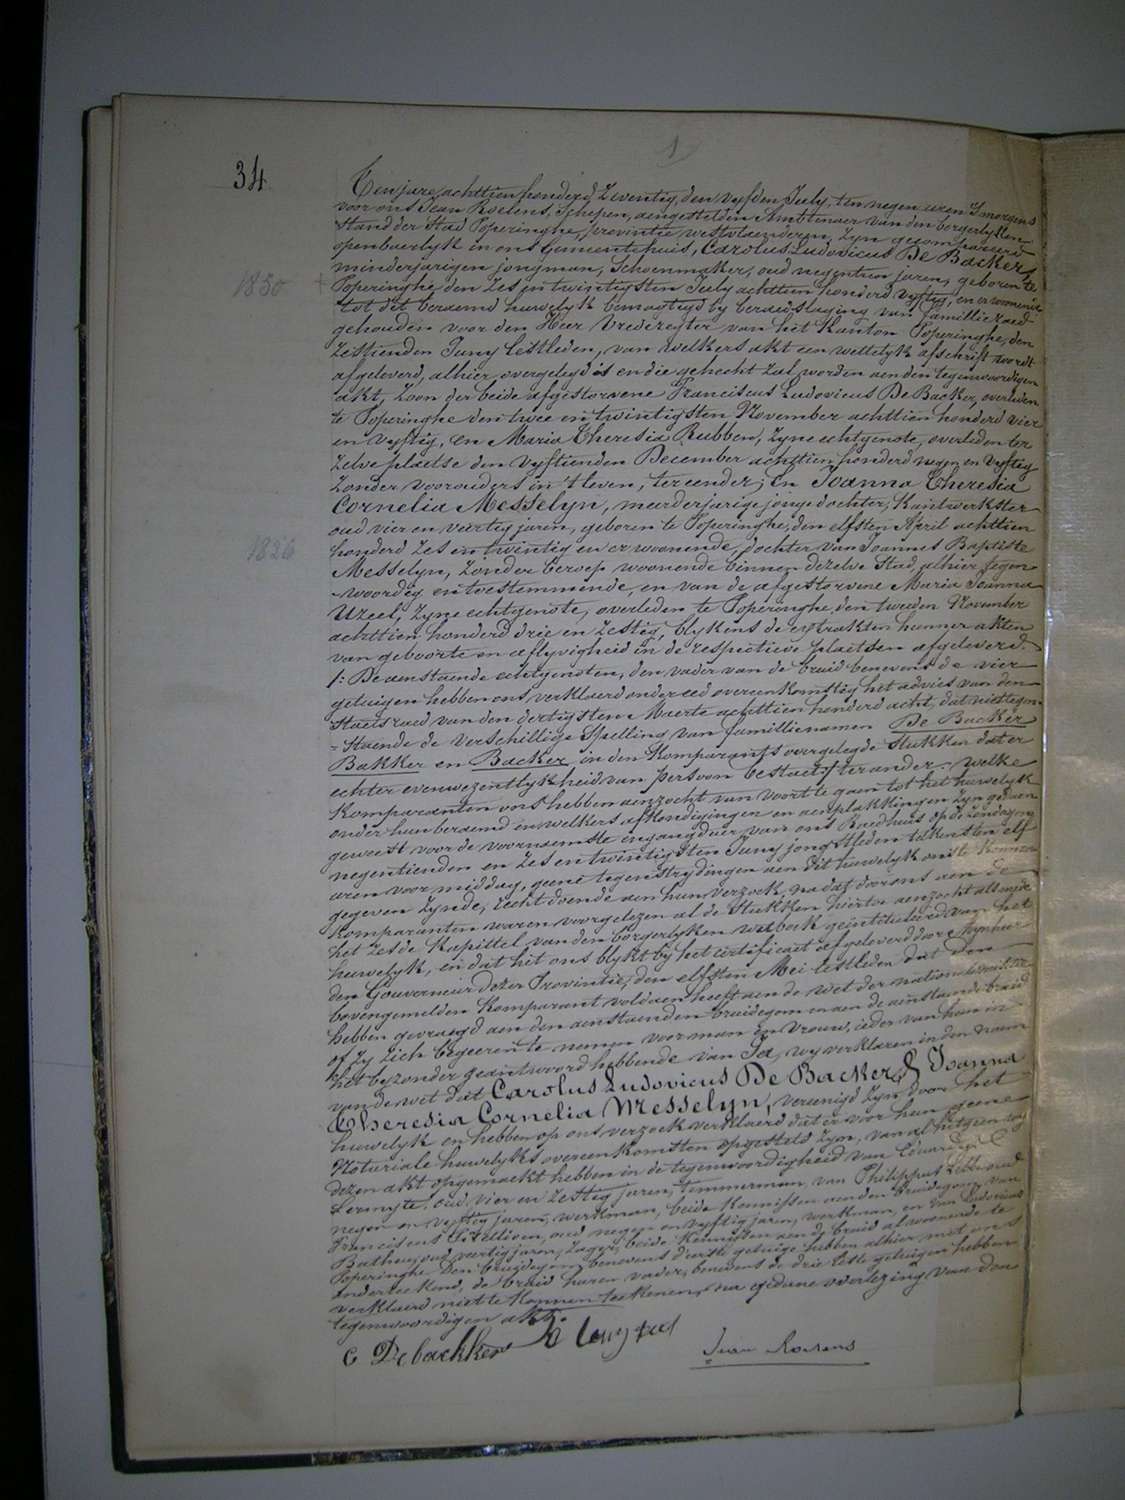 34
Ten jare achttien honderd Zeventig, den vyfden July, ten negen uren S'morgens
voor ons Jean Roelens, Schepen, aengestelden Ambtenaer van den borgerlyken
Stand der Stad Poperinghe, provintie westvlaenderen, Zyn gecompareerd
openbaerlyk in ons Gemeentehuis, Carolus Ludovicus De Backer,
minderjarigen jongman, Schoenmaker, oud negentien jaren, geboren te
1850 + Poperinghe, den Zes en twintigsten July achttien honderd vyftig, en er woonende
tot dit beraemd huwelyk bemagtigd by beraedslaging van familieraed
gehouden voor den Heer Vrederegter van het Kanton Poperinghe, den
Zestienden Juny lestleden, van welkers akt een wettelyk afschrift wordt
afgeleverd, alhier overgelegd is en die gehecht zal worden aen den tegenwoordigen
akt, Zoon der beide afgestorvene Franciscus Ludovicus De Backer, overleden
te Poperinghe den twee en twintigsten November achttien honderd vier
en vyftig, en Maria Theresia Rubben, Zyne echtgenote, overleden ter
Zelve plaetse den Vyftienden December achttien honderd negen en Vyftig
Zonder voorouders in 't leven, ter eender; En Joanna Theresia
Cornelia Messelyn, meerderjarige jongedochter, Kantwerkster
oud vier en veertig jaren, geboren te Poperinghe, den elfsten April achttien
1826 honderd Zes en twintig en er woonende, dochter van Joannes Baptiste
Messelyn, Zonder beroep woonende binnen dezelve Stad, alhier tegen-
-woordig en toestemmende, en van de afgestorvene Maria Joanna
Uzeel, Zyne echtgenote, overleden te Poperinghe, den tweeden November
achttien honderd drie en Zestig, blykens de extrakten hunner akten
van geboorte en aflyvigheid in de respectieve plaetsen afgeleverd.
/: De aenstaende echtgenoten, den vader van de bruid benevens de vier
getuigen hebben ons verklaerd onder eed overeenkomstig het advies van den
Staetsraed van den dertigsten Maerte achttien honderd acht, dat niettegen-
=Staende de verschillige Spelling van familienamen De Backer
Bakker en Backer in den Komparants overgelegde Stukken dat er
echter evenwezentlykheid van persoon bestaet :/ ter ander: welke
Komparanten ons hebben aenzocht van voort te gaen tot het huwelyk
onder hun beraemd en welkers afkondigingen en aenplakkingen Zyn gedaen
geweest voor de voornaemste ingangdeur van ons Raedhuis op de Zondagen
negentienden en Zes en twintigsten Juny jongstleden telkens ten elf
uren voor middag, geene tegenstrydingen aen dit huwelyk ons te Kennen
gegeven Zynde, recht doende aen hun verzoek, na dat door ons aen de
Komparanten waren voorgelezen al de Stukken hiertoe aenzocht alsmede
het Zesde Kapittel van den borgerlyken wetboek geintituleerd van het
huwelyk, en dat het ons blykt by het certificaet afgeleverd door Mynheer
den Gouverneur dezer Provintie, den elfsten Mei lestleden dat den
bovengemelden Komparant voldaen heeft aen de wet der nationale militie
hebben gevraegd aen den aenstaenden bruidegom en aen de aenstaende bruid
of Zy Zich begeeren te nemen voor man en Vrouw, ieder van hun in
het byzonder geantwoord hebbende van Ja, wy verklaren in den naem
van de wet dat Carolus Ludovicus De Backer, & Joanna
Theresia Cornelia Messelyn, vereenigd Zyn door het
huwelyk en hebben op ons verzoek verklaerd dat er voor hun geene
Notariale huwelyks overeenkomsten opgesteld Zyn, van al hetgeen wy
dezen akt opgemaekt hebben in de tegenwoordigheid van Eduardus C.
oud vier en Zestig jaren, timmerman, van Philippus oud
negen en vyftig jaren, werkman, beide Kennissen aen den bruidegom, van
Franciscus oud negen en vyftig jaren, werkman, en van Ludovicus
Batheu, oud veertig jaren, Zager, beide Kennissen aen de bruid al woonende te
Poperinghe. Den bruidegom, benevens d'eerste getuige hebben alhier met ons
onderteekend, de bruid haren vader, benevens de drie laetste getuigen hebben
verklaerd niet te Konnen teekenen, na gedaene voorlezing van den
tegenwoordigen akt.
C Debackker
Jean Roelens